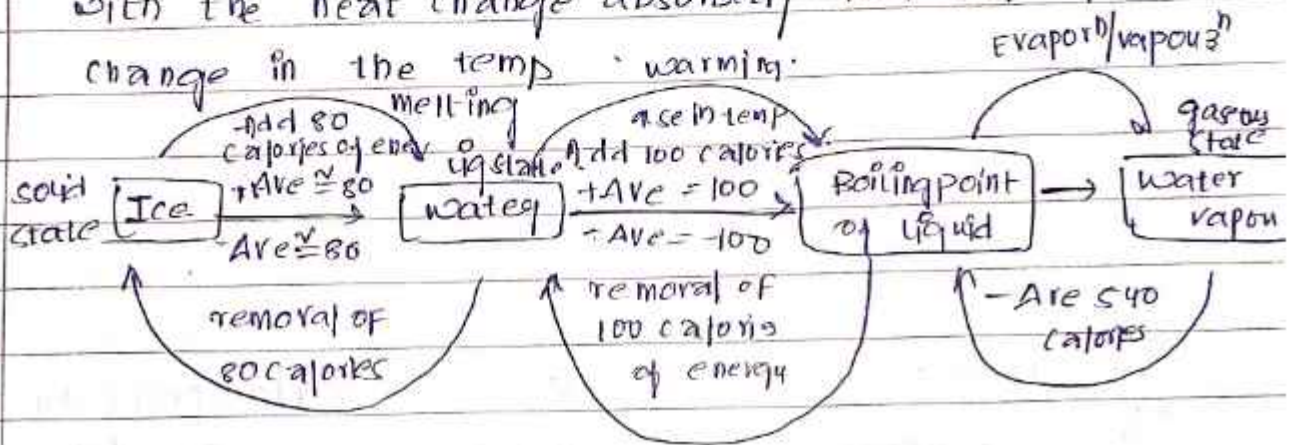 with the heat change absorbed
change in the temp warming.
Evaporⁿ/vapouzⁿ
melting
Add 80
calories of ener
liq state
ase in temp
Add 100 calories
gasous
state
solid
state
Ice
+Ave ≅ 80
-Ave ≅ 80
water
+Ave = 100
-Ave = -100
Boiling point
of liquid
water
vapou
removal of
80 calories
removal of
100 caloris
of energy
-Ave 540
calories